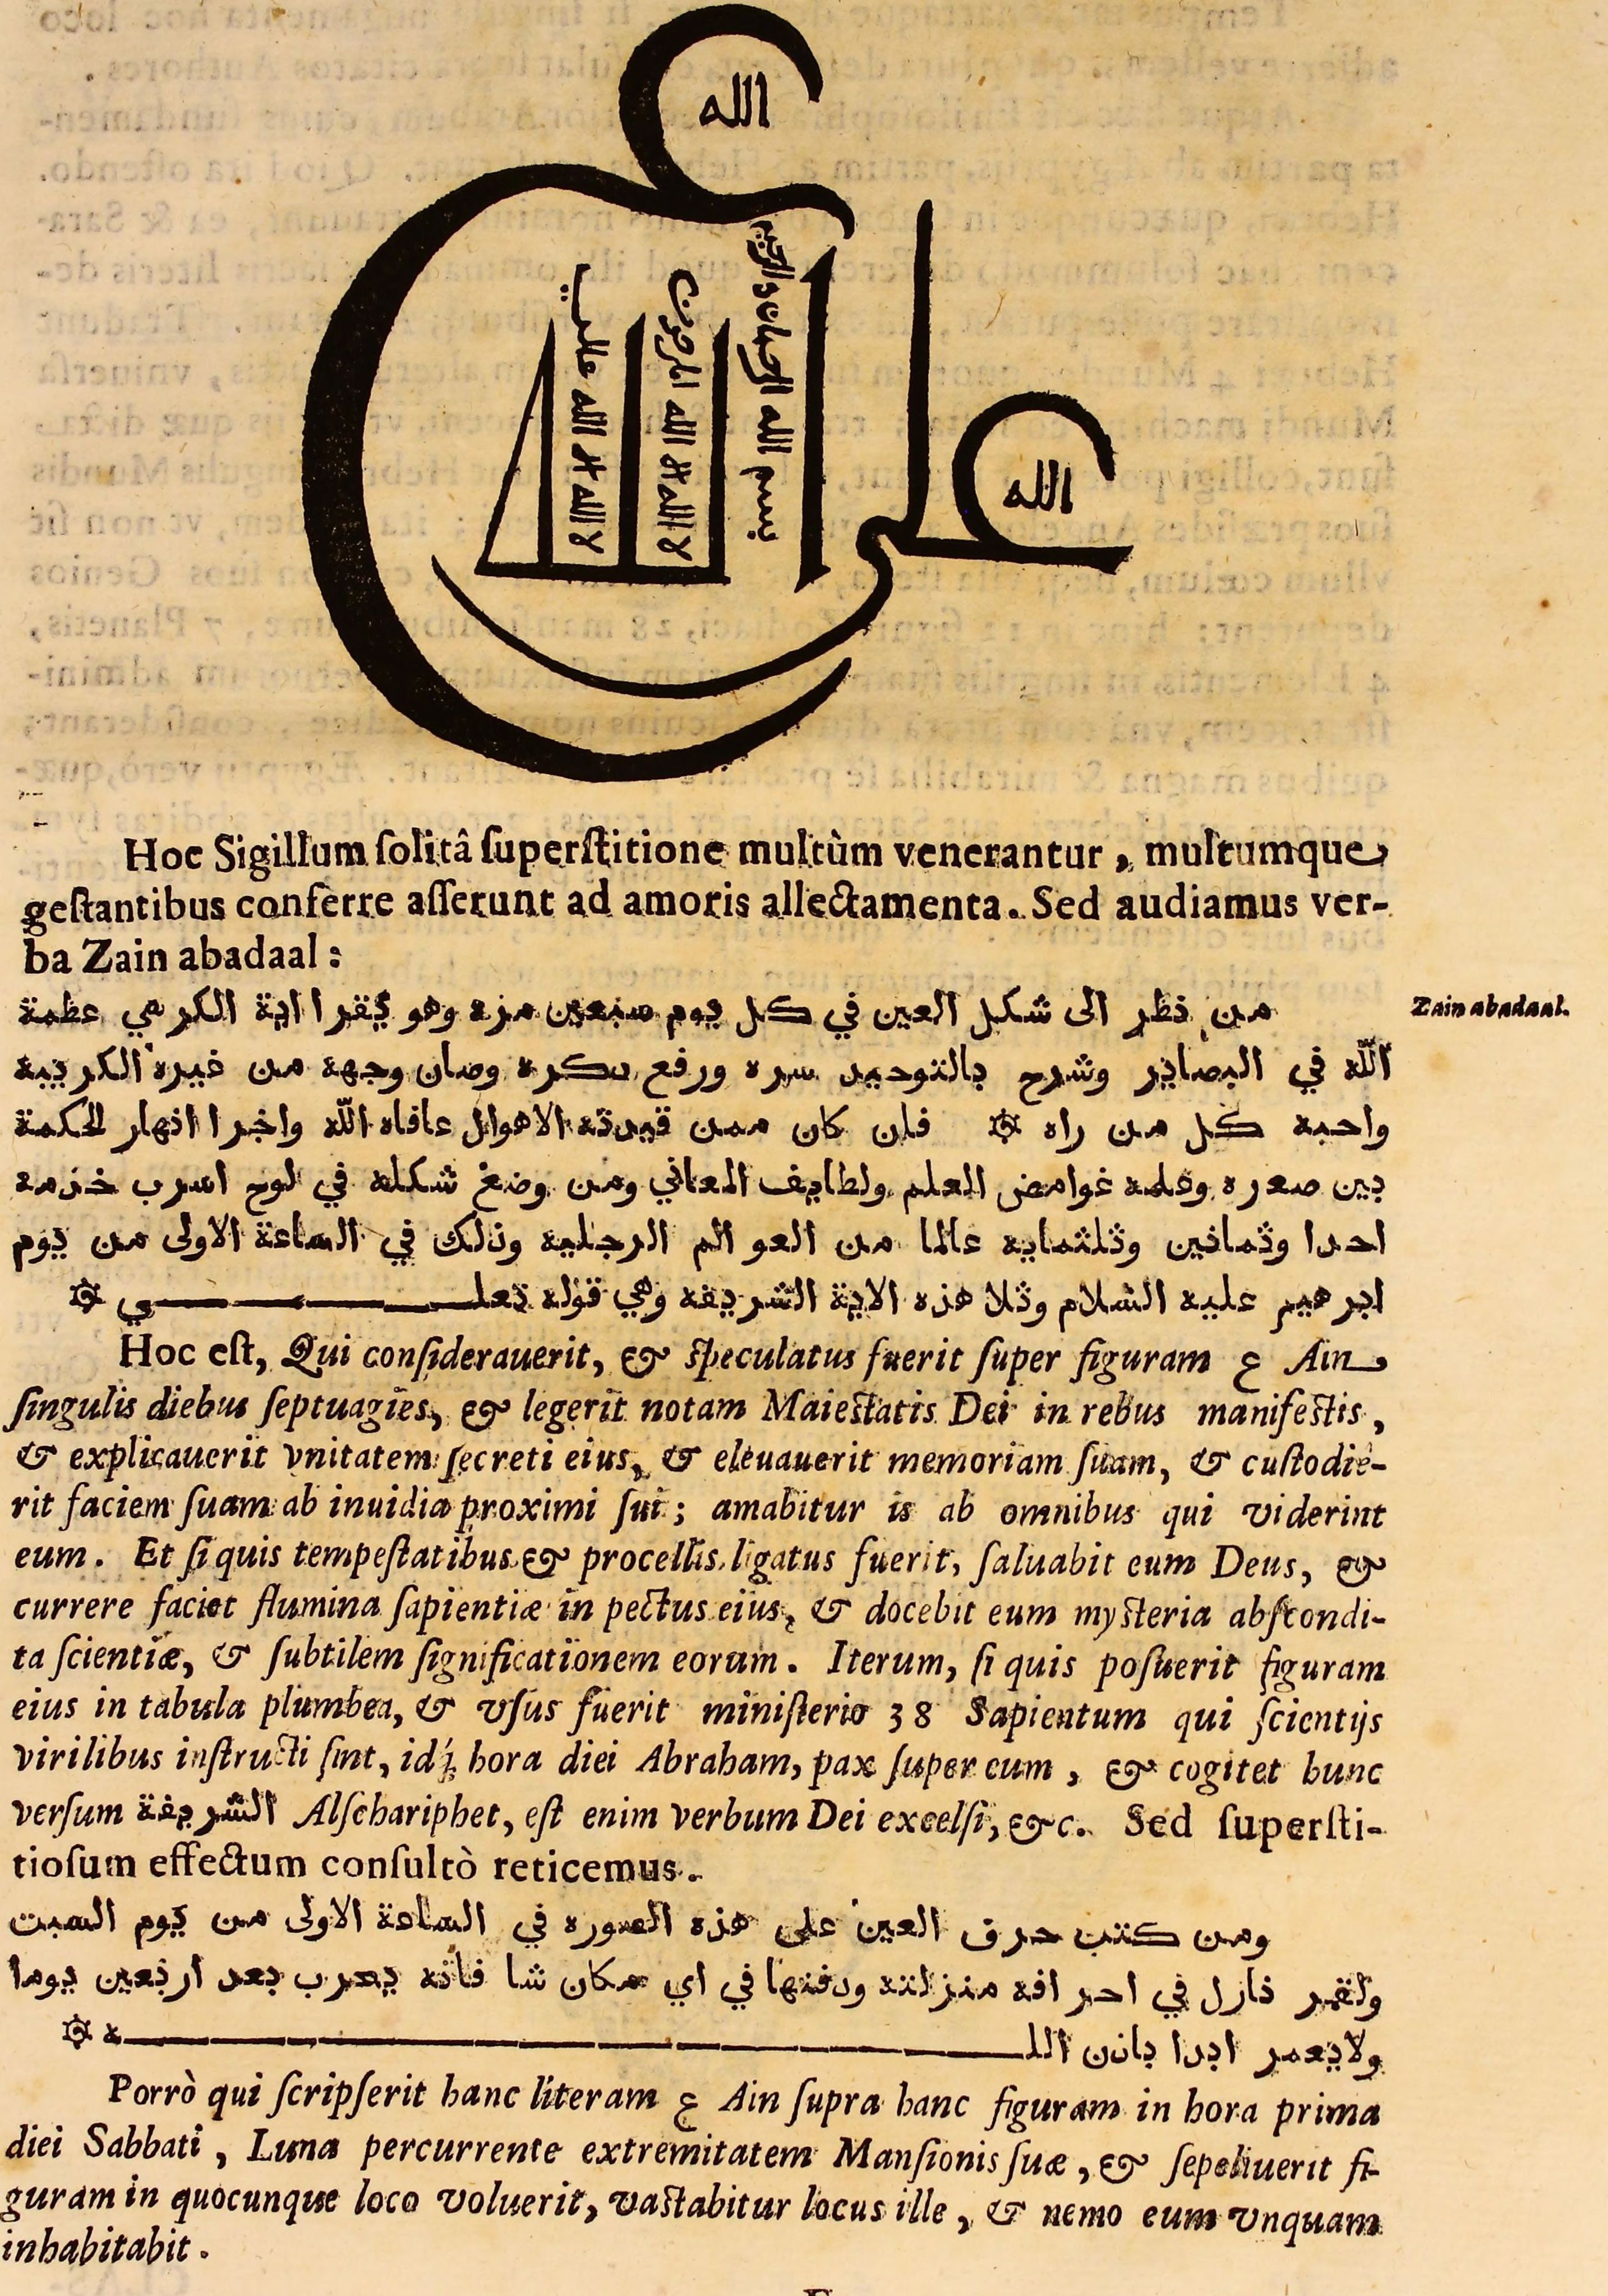 الله
الله
بسم الله الرحمان الرحيم
لا اله الا الله
لا اله الا الله
Hoc Sigillum ſolitâ ſuperſtitione multùm venerantur, multumque
geſtantibus conferre aſſerunt ad amoris allectamenta. Sed audiamus ver-
ba Zain abadaal:
Zain abadaal.
من نظر الى شكل العين في كل يوم سبعين مزه وهو يقرا اية الكرسي عظمة
اللّه في البصاير وشرح بالتوحيد سره ورفع دكره وصان وجهة من غيره الكريبة
واحبه كل من راه ۞ فان كان ممن قيدته الاهوال عافاه اللّه واجرا انهار لحكمة
بين صعره وعلمه غوامض العلم ولطايف المعاني ومن وضغ شكله في لوح اسرب خذمه
احدا وثمانين وثلثمايه عالما من العو الم الرجليه وذلك في الساعة الاولى من يوم
ابرهيم عليه السلام وثلا هذه الاية الشريفه وهي قوله تعلـــــي ۞
Hoc eſt, Qui conſiderauerit, & ſpeculatus fuerit ſuper figuram ع Ain
ſingulis diebus ſeptuagies, & legerit notam Maieſtatis Dei in rebus manifeſtis,
& explicauerit vnitatem ſecreti eius, & eleuauerit memoriam ſuam, & cuſtodie-
rit faciem ſuam ab inuidia proximi ſui; amabitur is ab omnibus qui viderint
eum. Et ſi quis tempeſtatibus & procellis ligatus fuerit, ſaluabit eum Deus, &
currere faciet flumina ſapientiæ in pectus eius, & docebit eum myſteria abſcondi-
ta ſcientiæ, & ſubtilem ſignificationem eorum. Iterum, ſi quis poſuerit figuram
eius in tabula plumbea, & vſus fuerit miniſterio 38 Sapientum qui ſcientijs
virilibus inſtructi ſint, idq́; hora diei Abraham, pax ſuper eum, & cogitet hunc
verſum الشريفة Alſchariphet, eſt enim verbum Dei excelſi, &c. Sed ſuperſti-
tioſum effectum conſultò reticemus.
ومن كتب حرف العين على هذه الصوره في الساعة الاولى من يوم السبت
ولقمر نازل في احر افه منزلته ودفنها في اي مكان شا فانه يخرب بعد اربعين يوما
ولايعمر ابدا باذن اللـــــه ۞
Porrò qui ſcripſerit hanc literam ع Ain ſupra hanc figuram in hora prima
diei Sabbati, Luna percurrente extremitatem Manſionis ſuæ, & ſepeliuerit fi-
guram in quocunque loco voluerit, vaſtabitur locus ille, & nemo eum vnquam
inhabitabit.